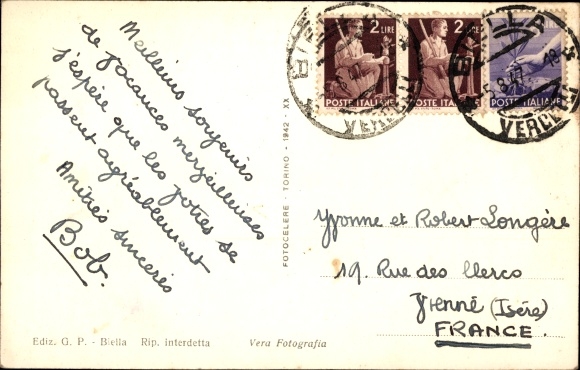 Meilleurs souvenirs
de vacances merveilleuses
j'espère que les votres se
passent agréablement
Amitiés sincères
Bob.
FOTOCELERE - TORINO - 1942 - XX
2 LIRE
2 LIRE
POSTE ITALIANE
POSTE ITALIANE
POSTE ITALIANE
BIELLA
VERCELLI
BIELLA
VERCELLI
Yvonne et Robert Longère
19. Rue des Clercs
Vienne (Isère)
FRANCE.
Ediz. G. P. - Biella Rip. interdetta Vera Fotografia